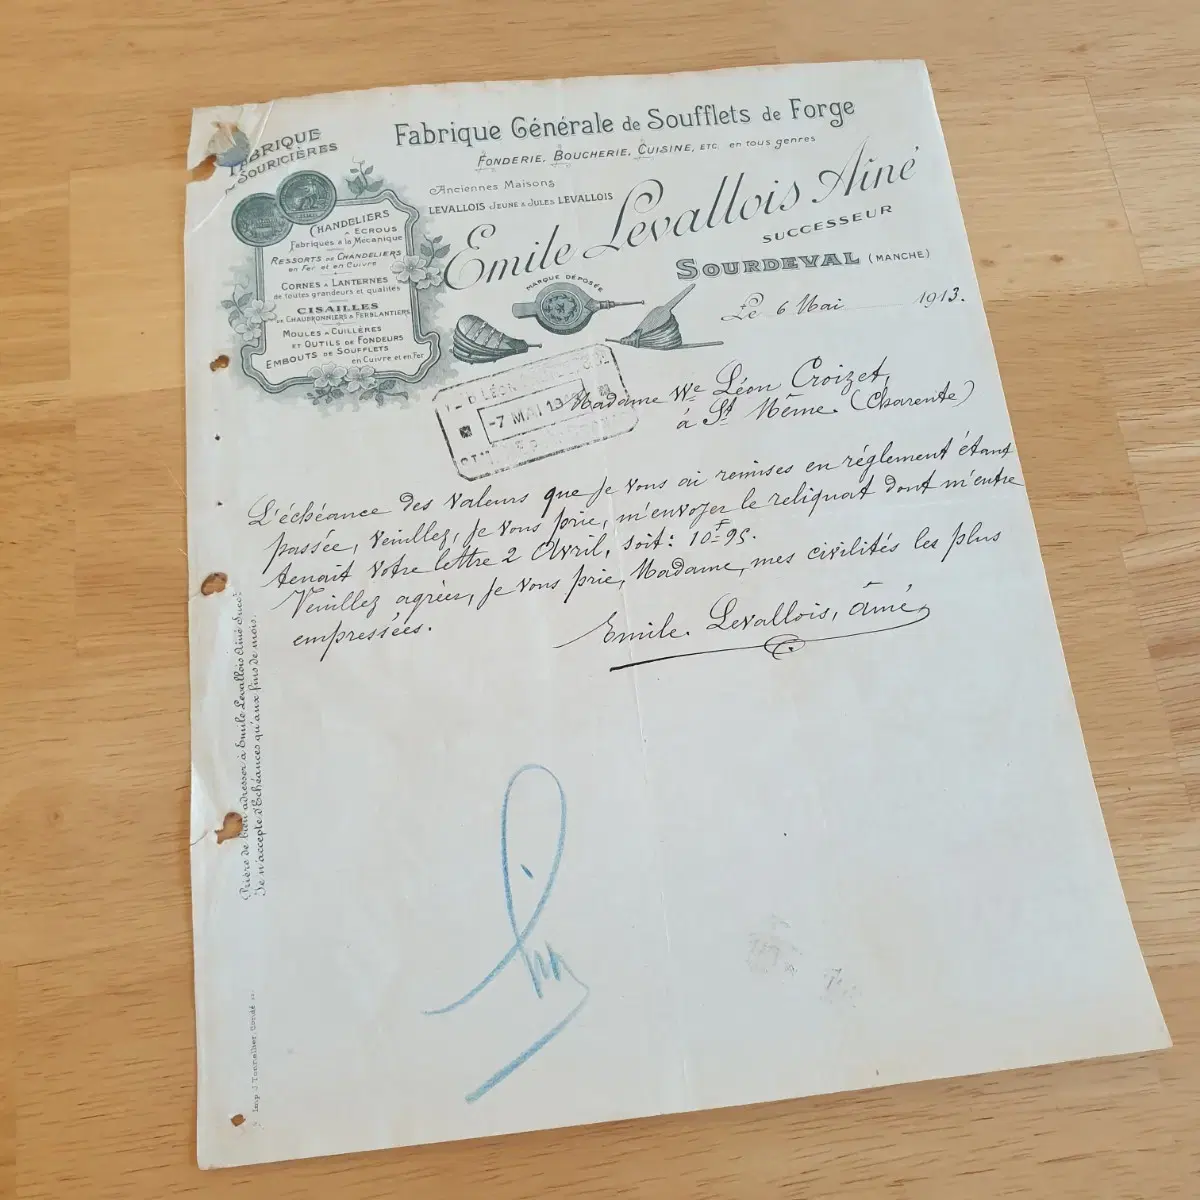 FABRIQUE
DE SOURICIÈRES
Fabrique Générale de Soufflets de Forge
FONDERIE, BOUCHERIE, CUISINE, ETC. en tous genres
Anciennes Maisons
LEVALLOIS JEUNE & JULES LEVALLOIS
Emile Levallois Ainé
SUCCESSEUR
SOURDEVAL (MANCHE)
CHANDELIERS
A ECROUS
Fabriqués à la Mécanique
RESSORTS DE CHANDELIERS
en Fer et en Cuivre
CORNES A LANTERNES
de toutes grandeurs et qualités
CISAILLES
DE CHAUDRONNIERS & FERBLANTIERS
MOULES A CUILLÈRES
ET OUTILS DE FONDEURS
EMBOUTS DE SOUFFLETS
en Cuivre et en Fer
MARQUE DÉPOSÉE
Le 6 Mai 1913.
LÉON
-7 MAI 191
Madame Vve Léon Croizet,
à St Même. (Charente)
L'échéance des valeurs que je vous ai remises en réglement étant
passée, veuillez, je vous prie, m'envoyer le reliquat dont m'entre
tenait votre lettre 2 Avril, soit: 10F95.
Veuillez agréer, je vous prie, Madame, mes civilités les plus
empressées.
Emile Levallois, Ainé
Prière de bien adresser à Emile Levallois Ainé Succr
Je n'accepte d'Echéances qu'aux fins de mois.
Imp. J Tournelher, Condé